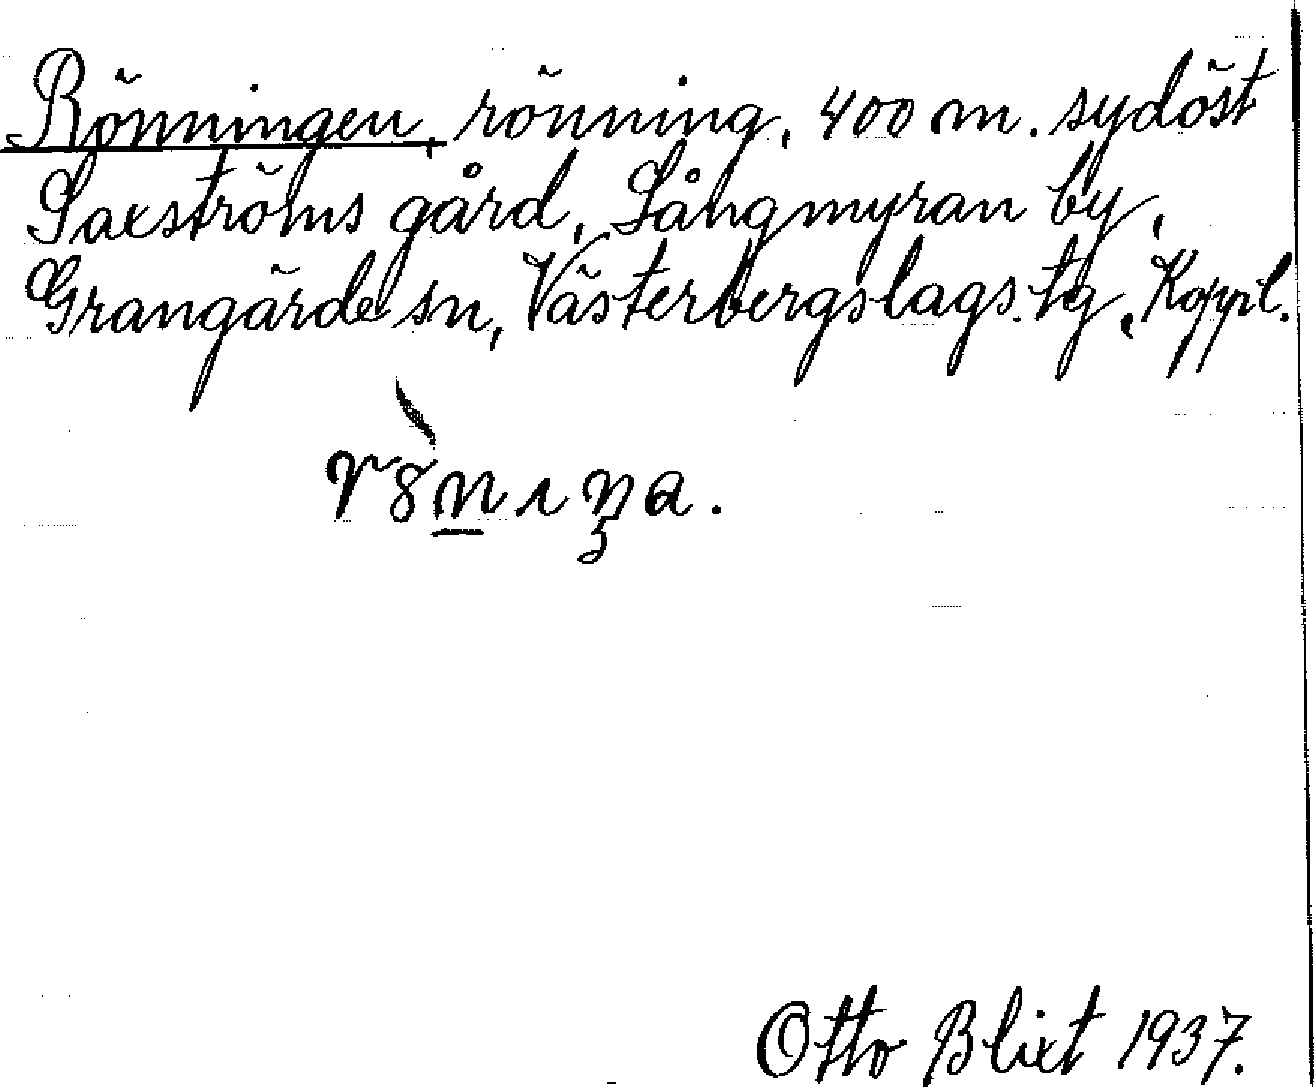 Rönningen, rönning, 400 m. sydöst
Saxströms gård, Långmyran by,
Grangärde sn, Västerbergslags tg, Koppl.
Otto Blixt 1937.